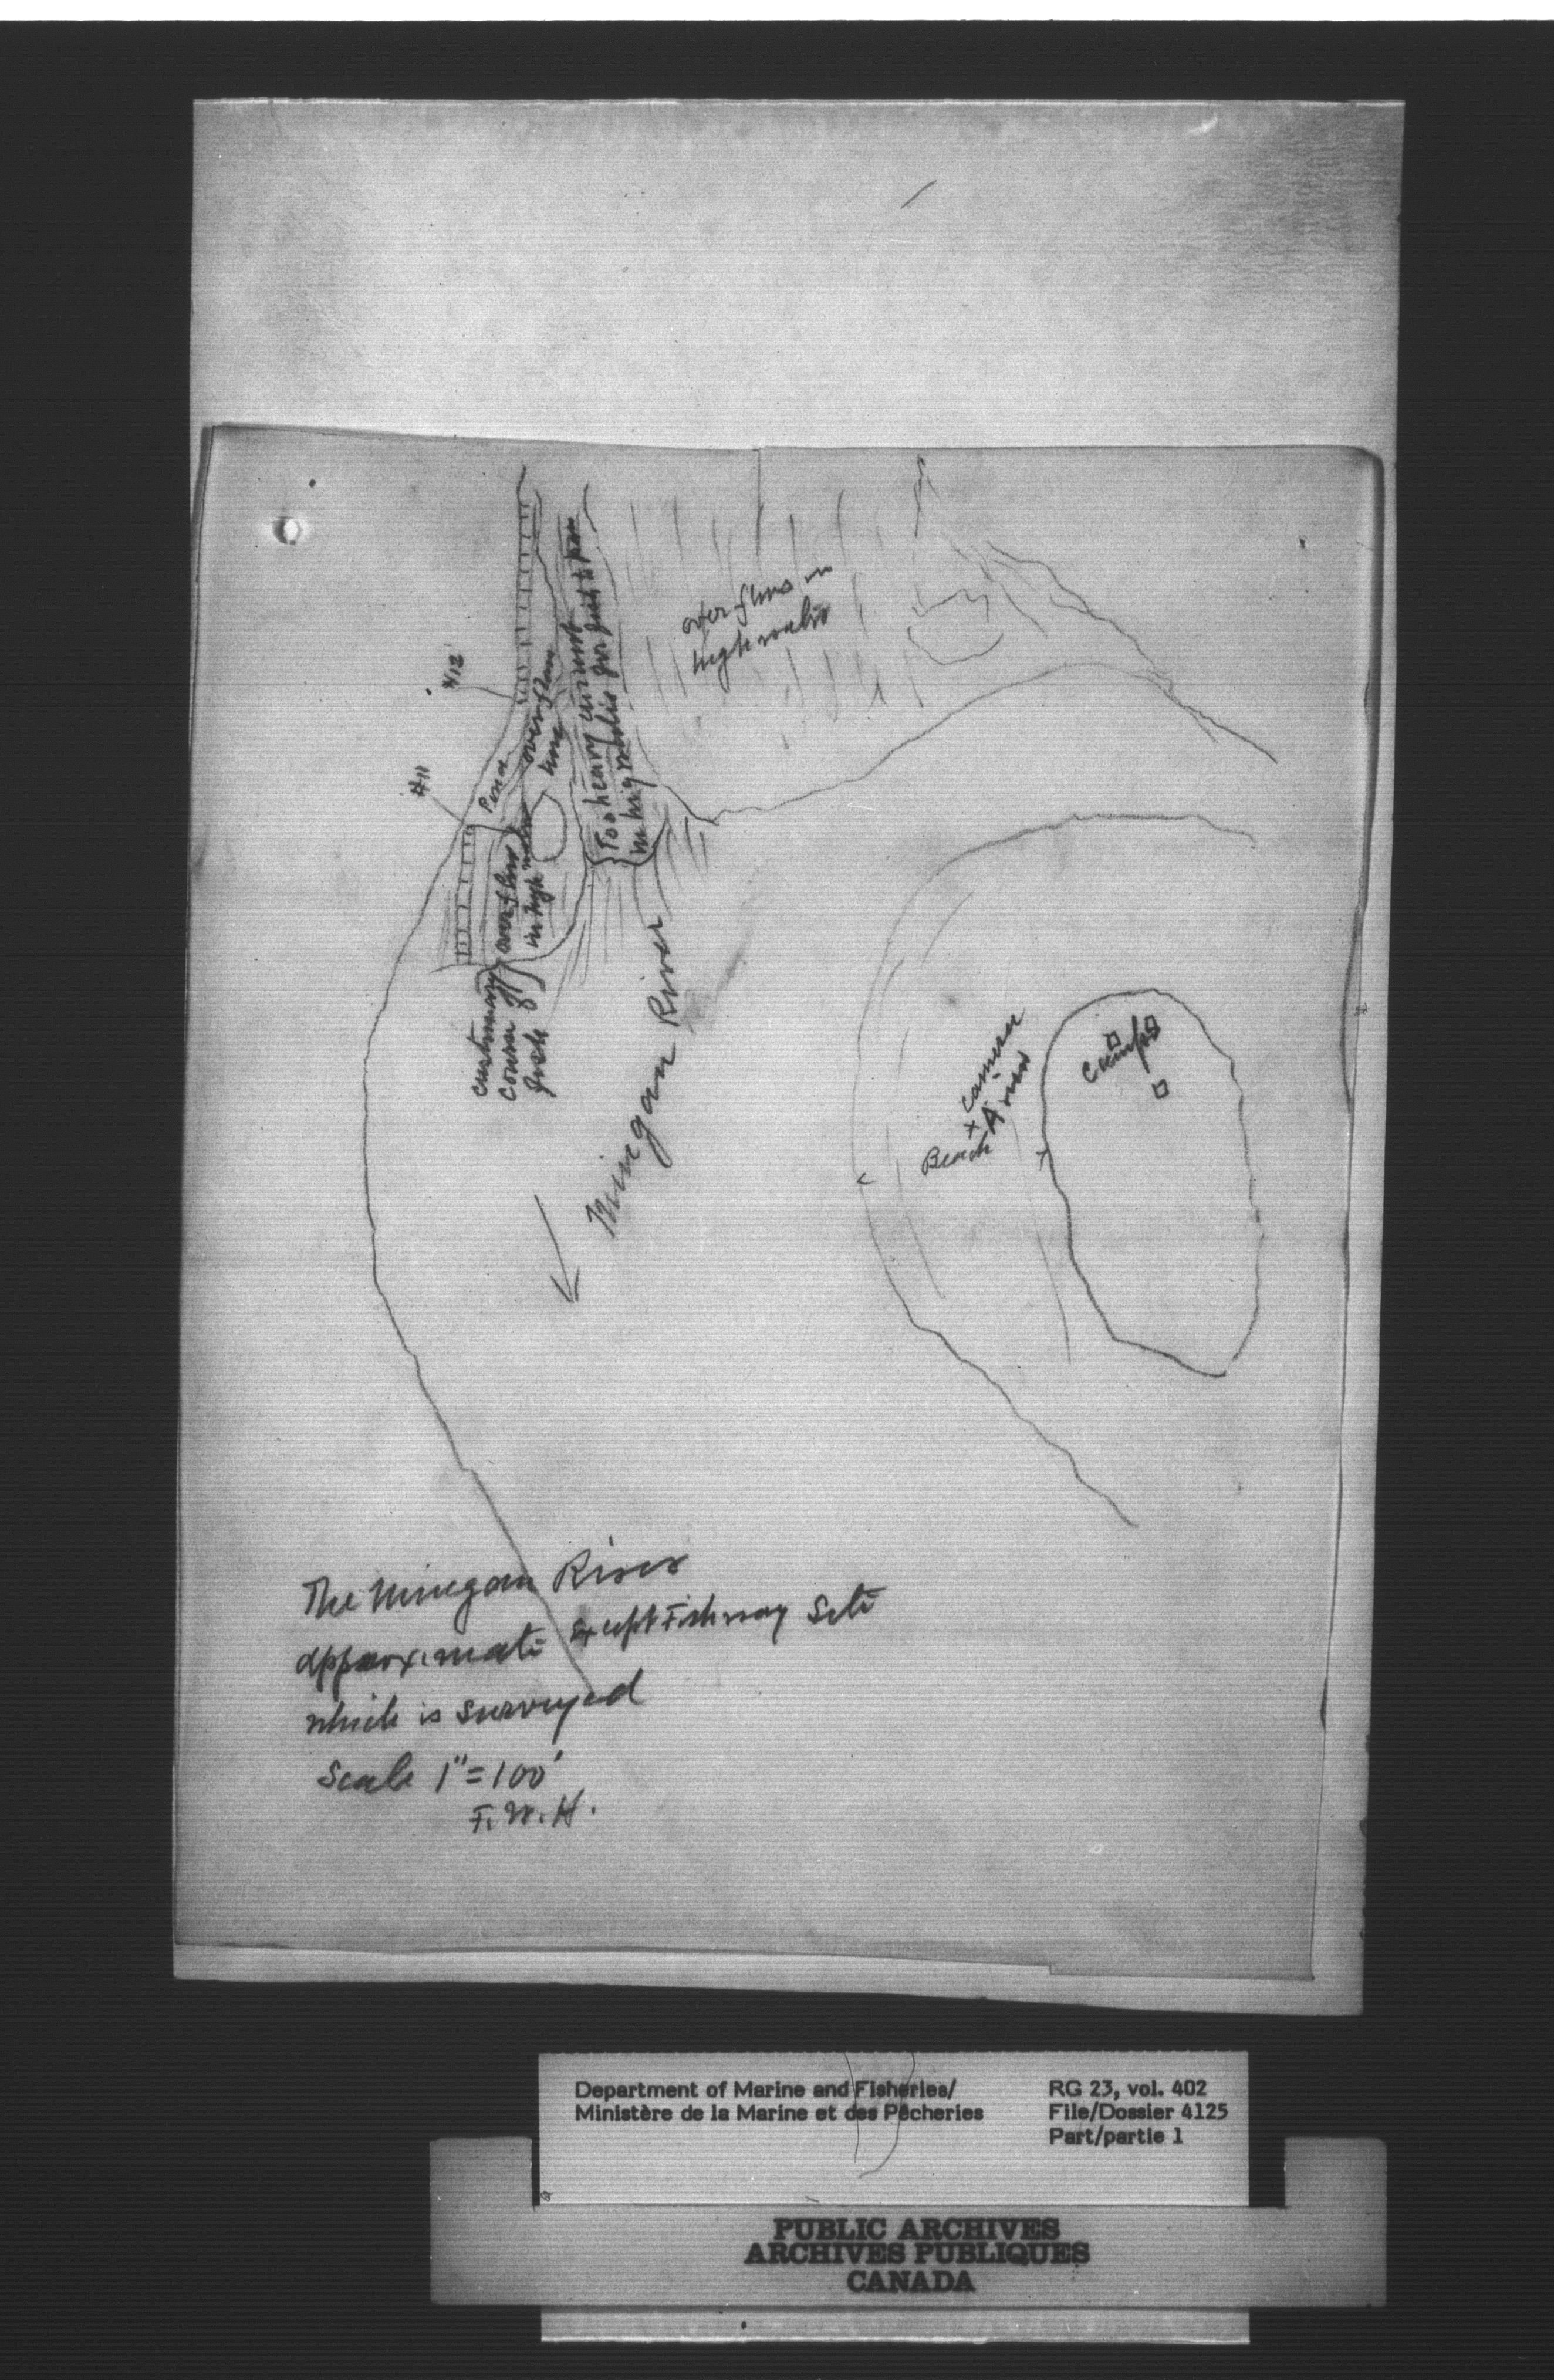 over flows in
high water
#12
overflow
line
Too heavy current
in high water for fish to pass
#11
Pool
overflow
in high water
customary
course of
fish
Mingan River
camera
x
A
Beach
Camps
The Mingan River
approximate except Fishway Site
which is surveyed
Scale 1"=100'
F.W.H.
Department of Marine and Fisheries/
Ministère de la Marine et des Pêcheries
RG 23, vol. 402
File/Dossier 4125
Part/partie 1
PUBLIC ARCHIVES
ARCHIVES PUBLIQUES
CANADA